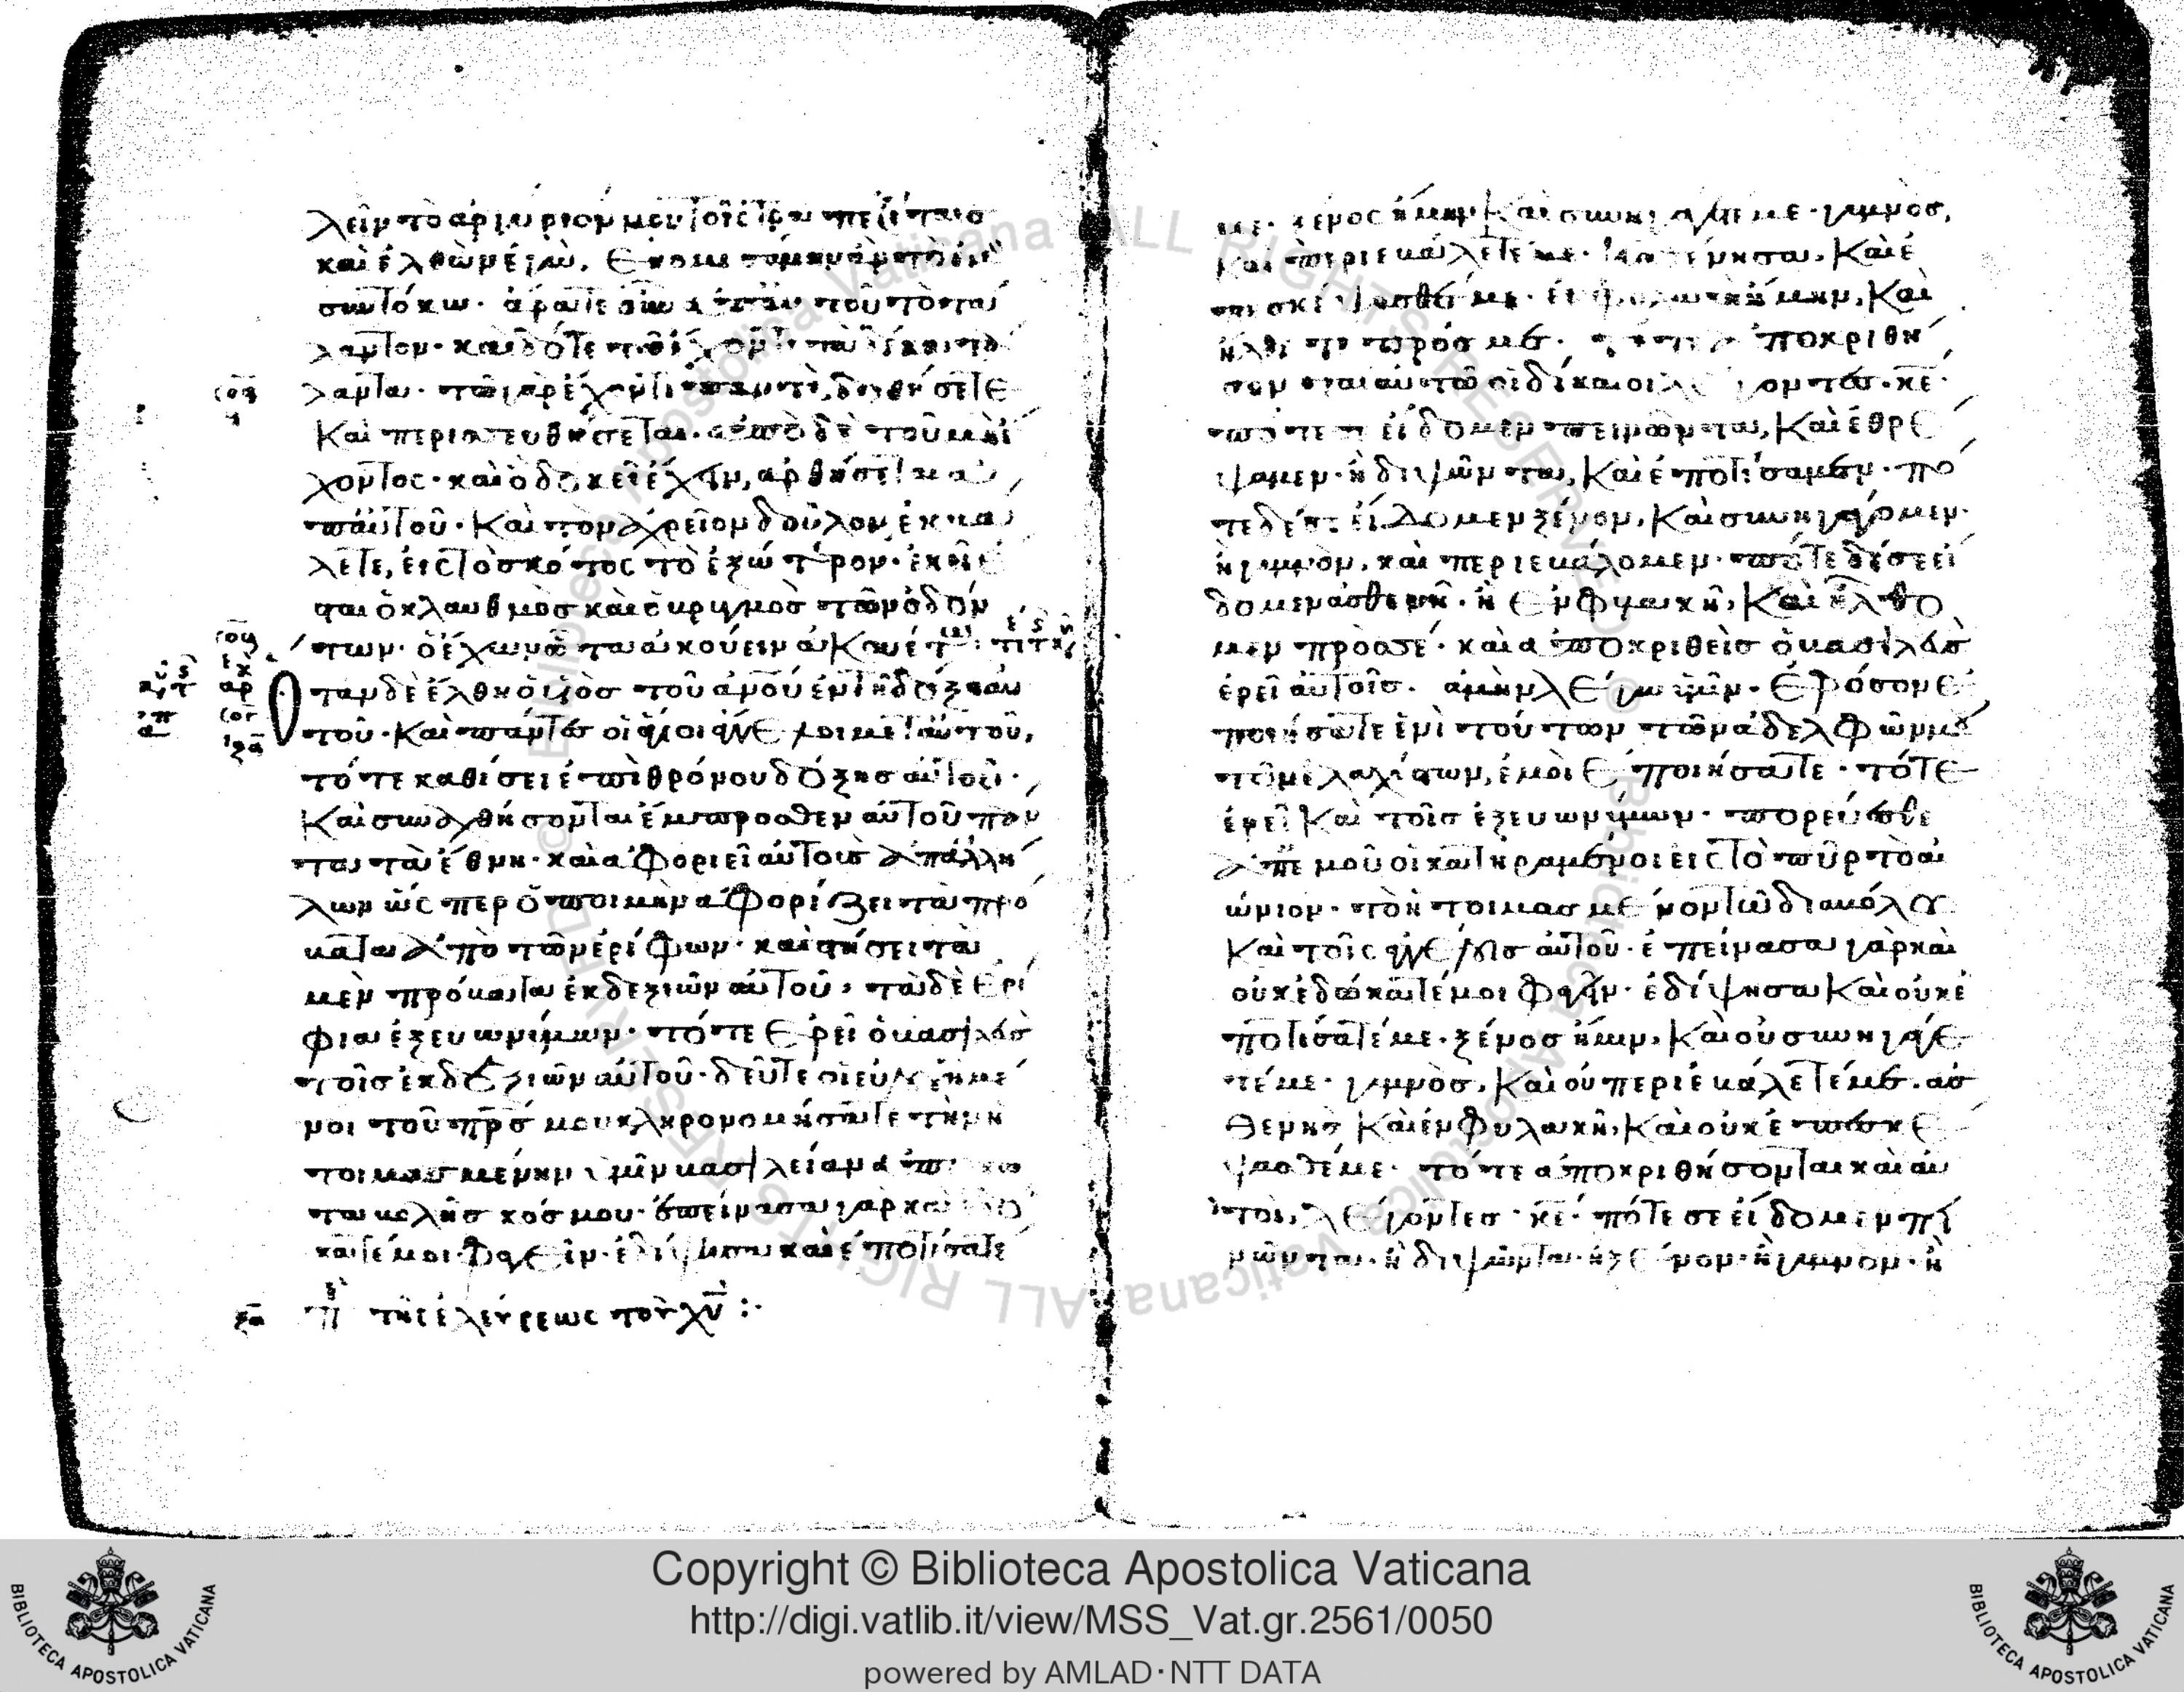 λεῖν τὸ ἀργύριόν μου τοῖς τραπεζίταις
καὶ ἐλθὼν ἐγὼ, ἐκομισάμην ἂν τὸ ἐμὸν
σὺν τόκω· ἄρατε οὖν ἀπ' αὐτοῦ τὸ τά
λαντον· καὶ δότε τῶ ἔχοντι τὰ δέκα τά
λαντα· τῶ γὰρ ἔχοντι παντὶ, δοθήσετε
Καὶ περισσευθήσεται· ἀπὸ δὲ τοῦ μὴ ἔ
χοντος· καὶ ὃ δοκεῖ ἔχειν, ἀρθήσεται
ἀπ' αὐτοῦ· Καὶ τὸν ἀχρεῖον δοῦλον ἐκβά
λετε, εἰς τὸ σκότος τὸ ἐξώτερον· ἐκεῖ ἔ
σται ὁ κλαυθμὸς καὶ ὁ βρυγμὸς τῶν ὀδόν
των· ὁ ἔχων ὦτα ἀκούειν ἀκουέτω
Ὅταν δὲ ἔλθη ὁ υἱὸς τοῦ ανου ἐν τῆ δόξη αὐ
τοῦ· Καὶ πάντες οἱ ἅγιοι ἄγγελοι μετ' αὐτοῦ,
τότε καθίσει ἐπὶ θρόνου δόξης αὐτοῦ·
Καὶ συναχθήσονται ἔμπροσθεν αὐτοῦ πάν
τα τὰ ἔθνη· καὶ ἀφοριεῖ αὐτοὺς ἀπ' ἀλλή
λων ὥς περ ὁ ποιμὴν ἀφορίζει τὰ πρό
βατα ἀπὸ τῶν ἐρίφων· καὶ στήσει τὰ
μὲν πρόβατα ἐκ δεξιῶν αὐτοῦ, τὰ δὲ ἐρί
φια ἐξ ευωνύμων· τότε ἐρεῖ ὁ βασιλεὺς
τοῖς ἐκ δεξιῶν αὐτοῦ· δεῦτε οἱ εὐλογημέ
νοι τοῦ πρς μου κληρονομήσατε τὴν ἡ
τοιμασμένην ὑμῖν βασιλείαν ἀπὸ κα
ταβολῆς κόσμου· ἐπείνασα γὰρ καὶ ἐδώ
κατέ μοι φαγεῖν· ἐδίψησα καὶ ἐποτίσατε
ξα π τῆς ἐλεύσεως τοῦ χυ :·
με· ξένος ἤμην Καὶ συνηγάγετέ με· γυμνὸς,
Καὶ περιεβάλετέ με· ἠσθένησα, Καὶ ἐ
πεσκέψασθέ με· ἐν φυλακῆ ἤμην, Καὶ
ἤλθετε πρός με· τότε ἀποκριθή
σονται αὐτῶ οἱ δίκαιοι λέγοντες· κε·
πότε σε εἴδομεν πεινῶντα, Καὶ ἐθρέ
ψαμεν· ἢ διψῶντα, Καὶ ἐποτίσαμεν· πό
τε δέ σε εἴδομεν ξένον, Καὶ συνηγάγομεν·
ἢ γυμνὸν, καὶ περιεβάλομεν· πότε δέ σε εἴ
δομεν ἀσθενῆ· ἢ ἐν φυλακῆ, Καὶ ἤλθο
μεν πρὸς σέ· καὶ ἀποκριθεὶς ὁ βασιλεὺς
ἐρεῖ αὐτοῖς· ἀμὴν λέγω ὑμῖν· ἐφ' ὅσον ἐ
ποιήσατε ἑνὶ τούτων τῶν ἀδελφῶν μου
τῶν ἐλαχίστων, ἐμοὶ ἐποιήσατε· τότε
ἐρεῖ Καὶ τοῖς ἐξ ευωνύμων· πορεύεσθε
ἀπ' ἐμοῦ οἱ κατηραμένοι εἰς τὸ πῦρ τὸ αἰ
ώνιον· τὸ ἡτοιμασμένον τῶ διαβόλου
Καὶ τοῖς ἀγγέλοις αὐτοῦ· ἐπείνασα γὰρ καὶ
οὐκ ἐδώκατέ μοι φαγεῖν· ἐδίψησα Καὶ οὐκ ἐ
ποτίσατέ με· ξένος ἤμην, Καὶ οὐ συνηγάγε
τέ με· γυμνὸς, Καὶ οὐ περιεβάλετέ με· ἀσ
θενὴς Καὶ ἐν φυλακῆ, Καὶ οὐκ ἐπεσκέ
ψασθέ με· τότε ἀποκριθήσονται καὶ αὐ
τοὶ, λέγοντες· κε· πότε σε εἴδομεν πει
νῶντα· ἢ διψῶντα· ἢ ξένον· ἢ γυμνον· ἢ
Copyright © Biblioteca Apostolica Vaticana
http://digi.vatlib.it/view/MSS_Vat.gr.2561/0050
powered by AMLAD·NTT DATA
BIBLIOTECA APOSTOLICA VATICANA
BIBLIOTECA APOSTOLICA VATICANA